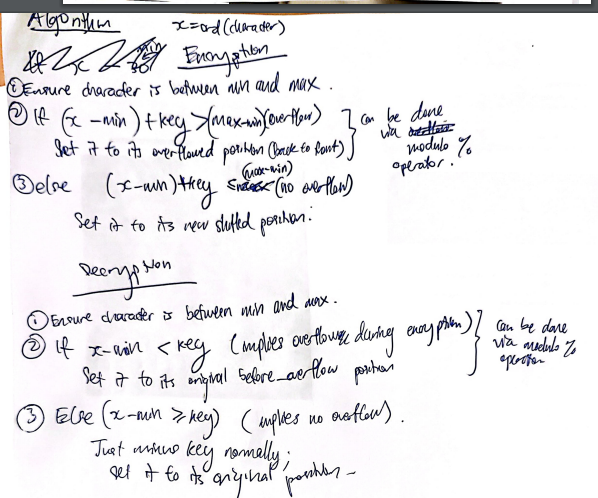 Algorithm
x=ord(character)
Encryption
① Ensure character is between min and max.
② If (x-min)+key>(max-min)(overflow)
Set it to its overflowed position (back to front)
can be done
via
modulo %
operator.
③ else (x-min)+key ≤ (max-min) (no overflow)
Set it to its new shifted position:
Decryption
① Ensure character is between min and max.
② If x-min < key (implies overflow during encryption)
Set it to its original before_overflow position
can be done
via modulo %
operator
③ Else (x-min ≥ key) (implies no overflow).
Just minus key normally;
set it to its original position-